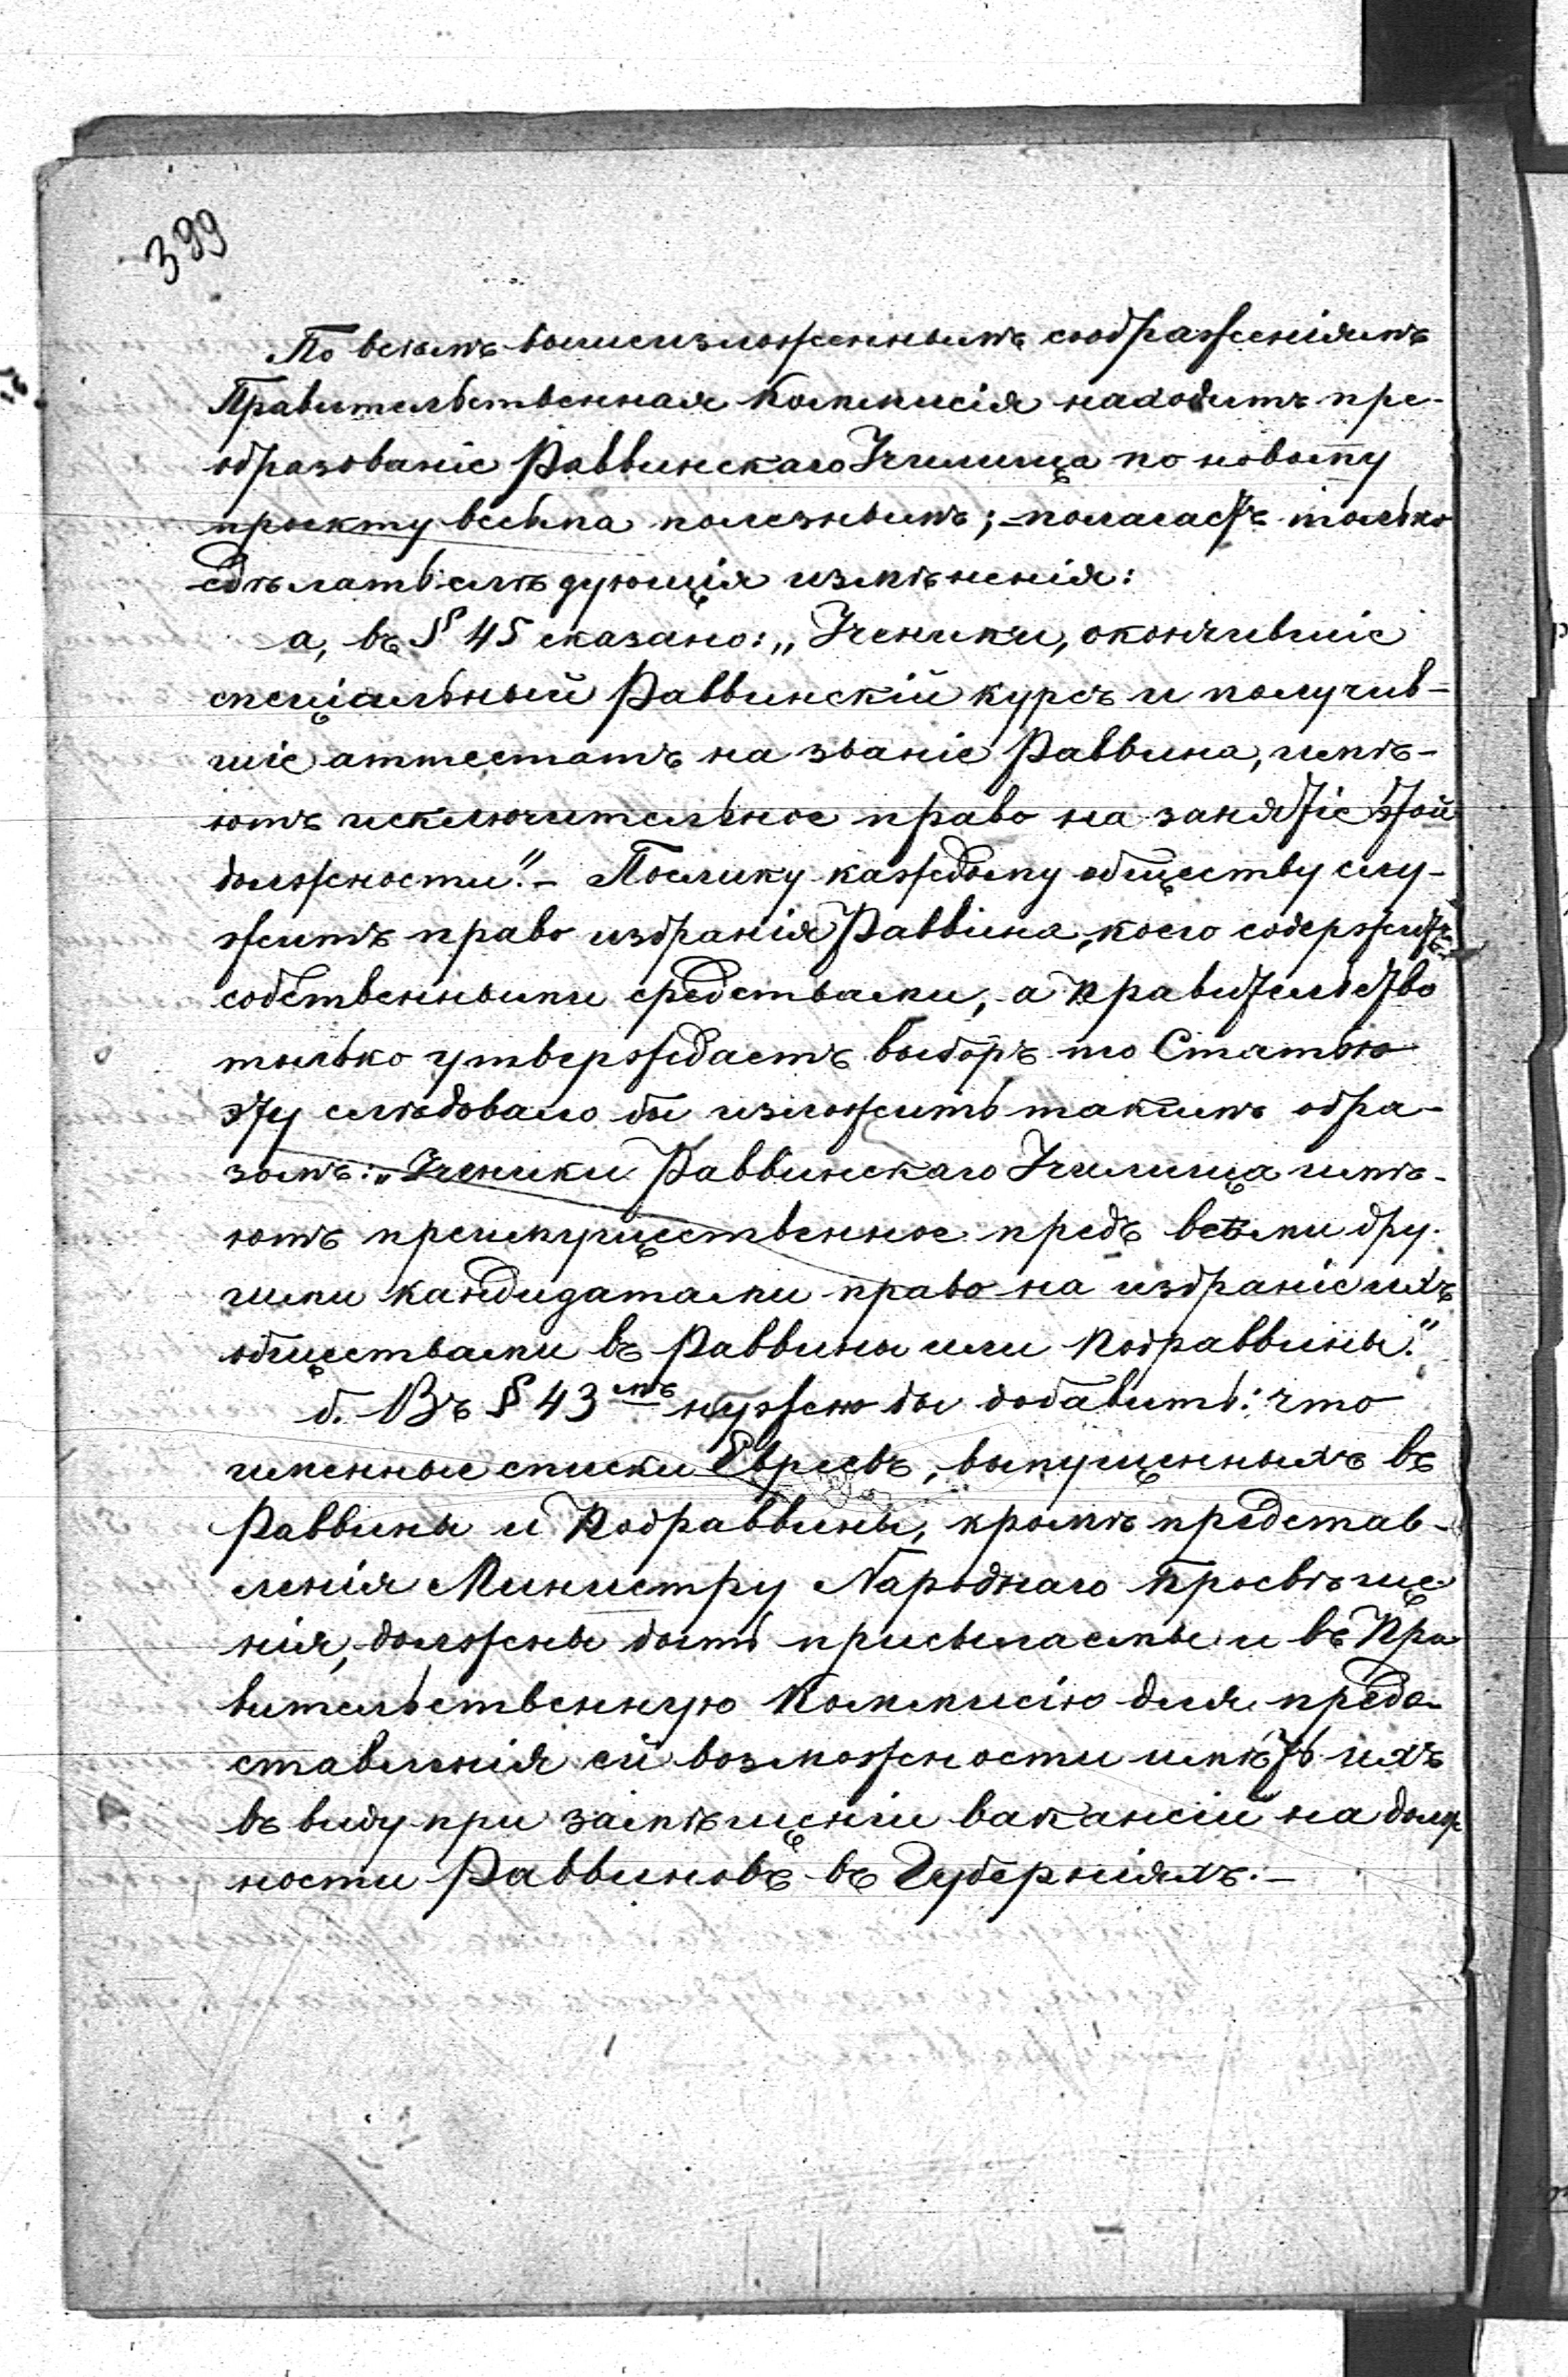 399
По всѣмъ вышеизложеннымъ соображеніямъ
Правительственная Коммисія находитъ пре-
образованіе Раввинскаго Училища по новому
проекту весьма полезнымъ; – полагаетъ только
сдѣлать слѣдующія измѣненія:
а, въ § 45 сказано: „Ученики, окончившіе
спеціальный Раввинскій курсъ и получив-
шіе аттестатъ на званіе Раввина, имѣ-
ютъ исключительное право на занятіе этой
должности". – Поелику каждому обществу слу-
житъ право избранія Раввина, коего содержитъ
собственными средствами, а Правительство
только утверждаетъ выборъ то Статью
эту слѣдовало бы изложить такимъ обра-
зомъ: „Ученики Раввинскаго Училища имѣ-
ютъ преимущественное предъ всѣми дру-
гими кандидатами право на избраніе ихъ
обществами въ Раввины или Подраввины."
б. Въ § 43мъ нужно бы добавить: что
именные списки Евреевъ, выпущенныхъ въ
Раввины и Подраввины, кромѣ представ-
ленія Министру Народнаго Просвѣще-
нія, должны быть присылаемы и въ Пра-
вительственную Коммисію для предо-
ставленія ей возможности имѣть ихъ
въ виду при замѣщеніи вакансіи на долж-
ности Раввиновъ въ Губерніяхъ. –